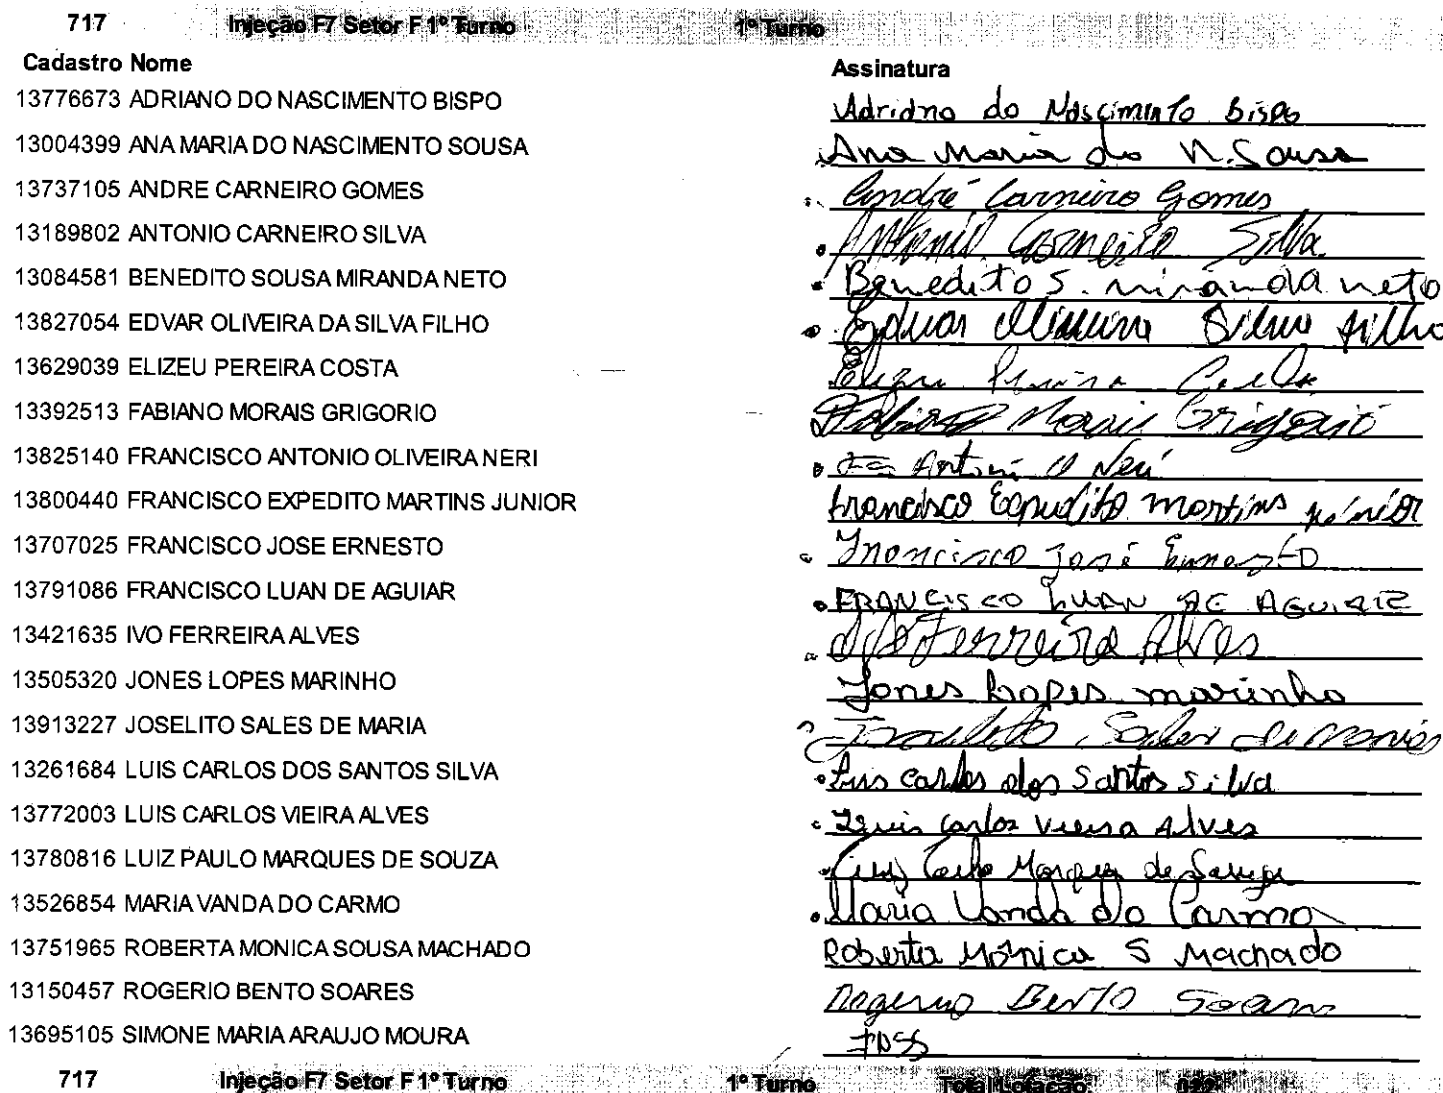 717 Injeção F7 Setor F 1º Turno 1º Turno
Cadastro Nome Assinatura
13776673 ADRIANO DO NASCIMENTO BISPO Adriano do Nascimento Bispo
13004399 ANA MARIA DO NASCIMENTO SOUSA Ana Maria do N. Sousa
13737105 ANDRE CARNEIRO GOMES André Carneiro Gomes
13189802 ANTONIO CARNEIRO SILVA Antonio Carneiro Silva
13084581 BENEDITO SOUSA MIRANDA NETO Benedito S. miranda neto
13827054 EDVAR OLIVEIRA DA SILVA FILHO Edvar Oliveira Silva filho
13629039 ELIZEU PEREIRA COSTA Elizeu Pereira Costa
13392513 FABIANO MORAIS GRIGORIO Fabiano Morais Grigorio
13825140 FRANCISCO ANTONIO OLIVEIRA NERI Antoni O Neri
13800440 FRANCISCO EXPEDITO MARTINS JUNIOR francisco Expedito martins junior
13707025 FRANCISCO JOSE ERNESTO Francisco José Ernesto
13791086 FRANCISCO LUAN DE AGUIAR FRANCISCO LUAN DE AGUIAR
13421635 IVO FERREIRA ALVES Ivo Ferreira Alves
13505320 JONES LOPES MARINHO Jones Lopes marinho
13913227 JOSELITO SALES DE MARIA Joselito Sales de maria
13261684 LUIS CARLOS DOS SANTOS SILVA Luis carlos dos Santos silva
13772003 LUIS CARLOS VIEIRA ALVES Luis carlos Vieira Alves
13780816 LUIZ PAULO MARQUES DE SOUZA Luiz Paulo Marques de Souza
13526854 MARIA VANDA DO CARMO Maria Vanda do Carmo
13751965 ROBERTA MONICA SOUSA MACHADO Roberta Mônica S Machado
13150457 ROGERIO BENTO SOARES Rogerio Bento Soares
13695105 SIMONE MARIA ARAUJO MOURA
717 Injeção F7 Setor F 1º Turno 1º Turno Total Lotação: 022